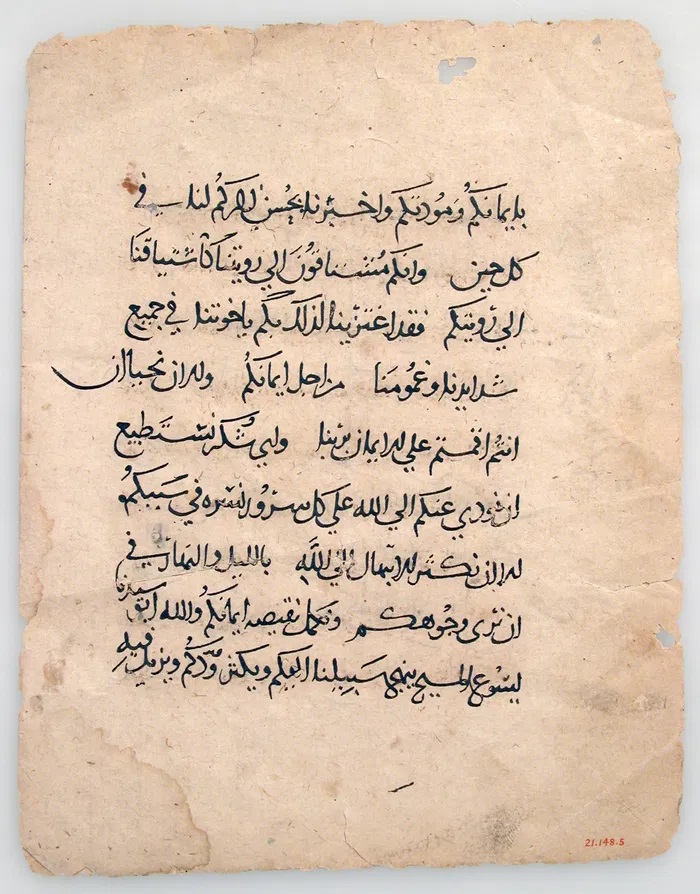 بايمانكم ومودتكم واخبرنا بحسن ذكركم لنا في
كل حين وانكم مشتاقون الي رويتنا كاشتياقنا
الي رويتكم فقد اعتزينا لذلك بكم ياخوتنا في جميع
شدايدنا وغمومنا من اجل ايمانكم والان نحيا ان
انتم اقمتم علي الايمان بربنا واي شكر نستطيع
ان نودي عنكم الي الله علي كل سرور نسره في سببكم
الا ان نكثر الابتهال الي الله بالليل والنهار في
ان نرى وجوهكم ونكمل نقيصه ايمانكم والله سيدنا
ليسوع المسيح ينهج سبيلنا اليكم ويكثر ودكم ويزيد فيه
21.148.5